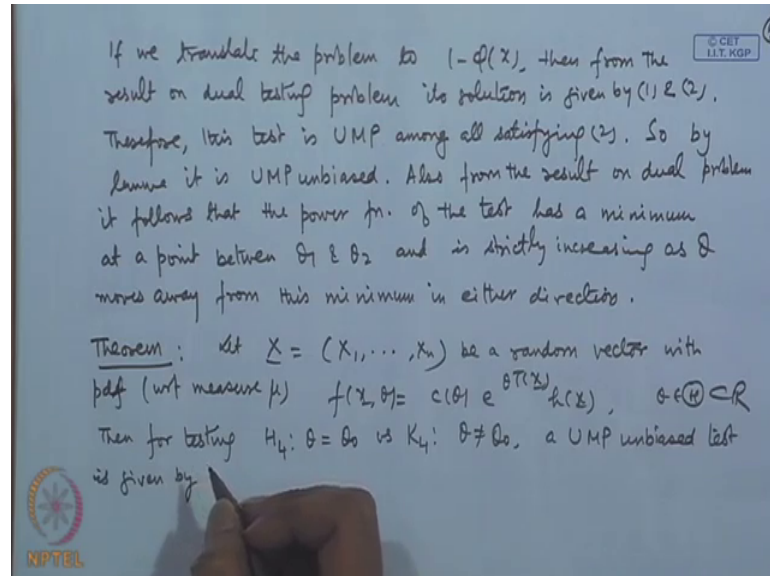 If we translate the problem to 1-φ(x), then from the
result on dual testing problem its solution is given by (1) & (2).
Therefore, this test is UMP among all satisfying (2). So by
lemma it is UMP unbiased. Also from the result on dual problem
it follows that the power fn. of the test has a minimum
at a point between θ1 & θ2 and is strictly increasing as θ
moves away from this minimum in either direction.
Theorem : Let X = (X1, ..., Xn) be a random vector with
pdf (wrt measure μ) f(x, θ) = c(θ) e^{θT(x)} h(x), θ ∈ Ⓗ ⊂ R
Then for testing H4: θ = θ0 vs K4: θ ≠ θ0, a UMP unbiased test
is given by
© CET
I.I.T. KGP
NPTEL